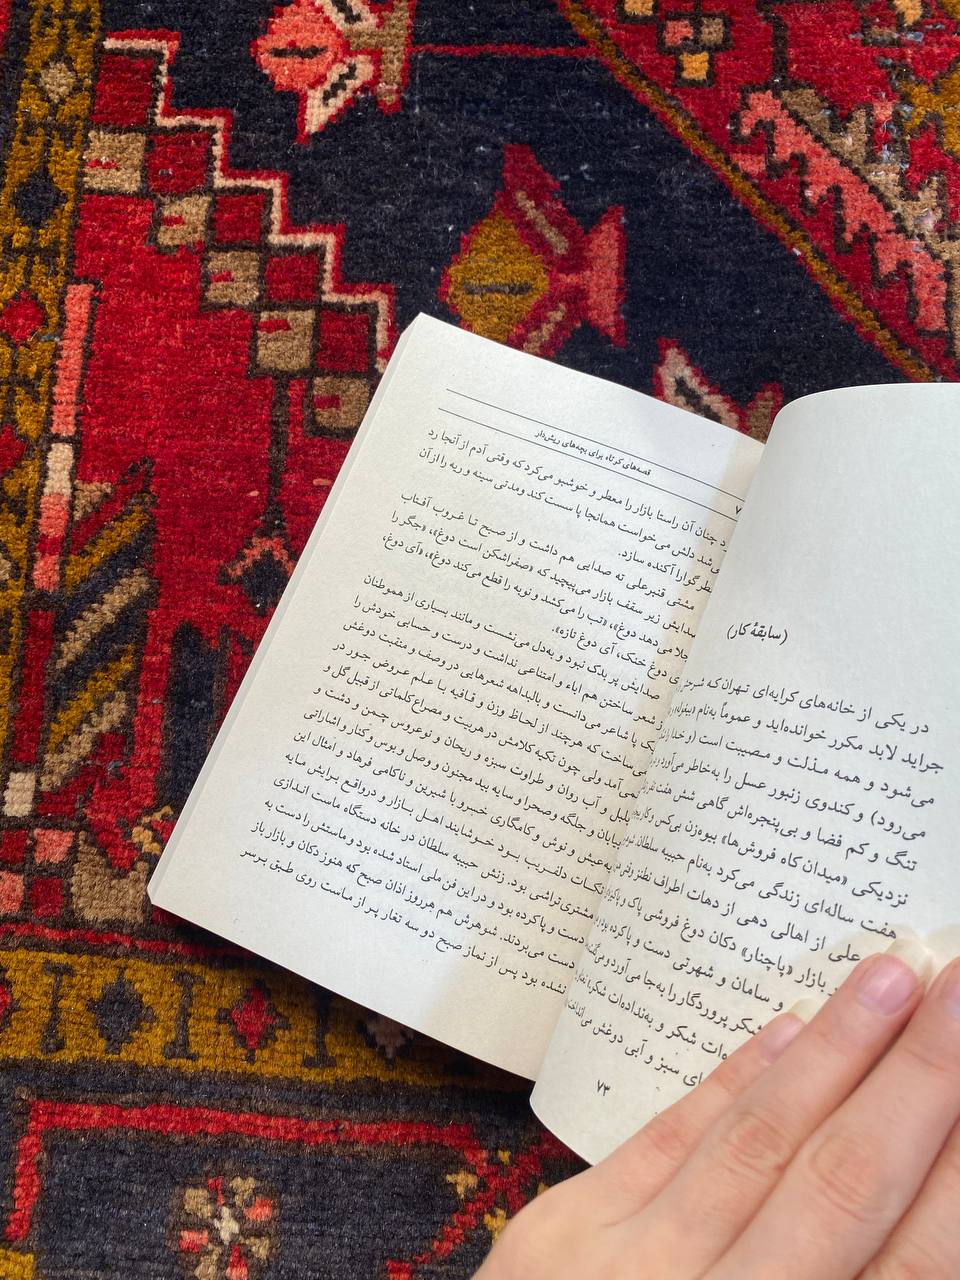 (سابقهٔ کار)
در یکی از خانه‌های کرایه‌ای تهران که
جراید لابد مکرر خوانده‌اید و عموماً به‌نام
می‌شود و همه مذلت و مصیبت است (و خدا
می‌رود) و کندوی زنبور عسل را به‌خاطر می‌آورد
تنگ و کم فضا و بی‌پنجره‌اش گاهی شش هفت
نزدیکی «میدان کاه فروش‌ها» بیوه‌زن بی‌کس و
هفت ساله‌ای زندگی می‌کرد به‌نام حبیبه سلطان
علی از اهالی دهی از دهات اطراف نطنز
بازار «پاچنار» دکان دوغ فروشی پاک و
و سامان و شهرتی دست و پا کرده بود
شکر پروردگار را به‌جا می‌آورد و
شکر و به‌نداده‌ات شکر»
سبز و آبی دوغش
۷۳
قصه‌های کوتاه برای بچه‌های ریش‌دار
چنان آن راستا بازار را معطر و خوشبو می‌کرد که وقتی آدم از آنجا رد
شد دلش می‌خواست همانجا پا سست کند و مدتی سینه و ریه را از آن
گوارا آکنده سازد.
مشتی قنبرعلی ته صدایی هم داشت و از صبح تا غروب آفتاب
صدایش زیر سقف بازار می‌پیچید که «صفراشکن است دوغ»، «جگر را
جلا می دهد دوغ»، «تب را می‌کشد و نوبه را قطع می‌کند دوغ»، «آی دوغ،
دوغ خنک، آی دوغ تازه».
صدایش پر بدک نبود و به‌دل می‌نشست و مانند بسیاری از هموطنان
شعر ساختن هم اباء و امتناعی نداشت و درست و حسابی خودش را
پا شاعر می‌دانست و بالبداهه شعرهایی در وصف و منقبت دوغش
می‌ساخت که هرچند از لحاظ وزن و قافیه با علم عروض جور در
نمی‌آمد ولی چون تکیه کلامش در هر بیت و مصراع کلماتی از قبیل گل و
بلبل و آب روان و طراوت سبزه و ریحان و نوعروس چمن و دشت و
بیابان و جلگه و صحرا و سایه بید مجنون و وصل و بوس و کنار و اشاراتی
به‌عیش و نوش و کامگاری خسرو با شیرین و ناکامی فرهاد و امثال این
نکات دلفریب بود خوشایند اهل بازار و درواقع برایش مایه
مشتری‌تراشی بود. زنش حبیبه سلطان در خانه دستگاه ماست اندازی
دست و پا کرده بود و در این فن ملی استاد شده بود و ماستش را دست به
دست می‌بردند. شوهرش هم هرروز اذان صبح که هنوز دکان و بازار باز
نشده بود پس از نماز صبح دو سه تغار پر از ماست روی طبق برسر